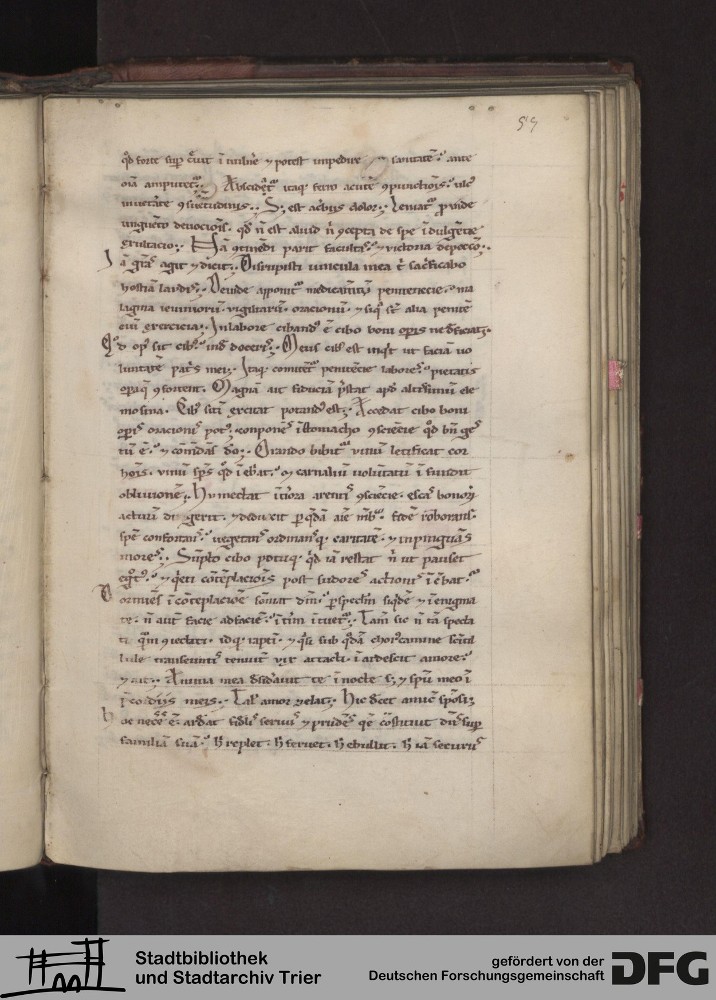 59
qd forte sup creuit i uulnere ⁊ potest impedire sanitatē. ante
oīa amputet̄. Abscidat̄ itaq; ferro acute ɔpunctiōis. ulc
inueterate ɔsuetudinis. S; est acerbus dolor. Leniat̄ proinde
unguēto deuociōis. qd n̄ est aliud n̄ ɔcepta de spe īdulgētie
exultacio. Hāc ɔtinēdi parit facultas. ⁊ uictoria de pecco.
Iā gr̄as agit ⁊ dicit. Disrupisti uincula mea t̄ sac̄ficabo
hostiā laudis. Deinde apponit̄ medicamētū penitencie. ma
lagma ieiuniorū. uigiliarū. oracionū. ⁊ siq̄ sc̄ alia penitē
ciū exercicia. In labore cibandus ē cibo boni operis ne deficiat.
Qd op' sit cib'. inde doceris. Meus cib' est inq̄t ut faciā uo
luntatē patris mei. Itaq; comitet̄ penitēcie labores. pietatis
opa q̄ ɔfortent. Magnā ait fiduciā p̄stat apd altissimū ele
mosina. Cib' sitī excitat potand' est. Accedat cibo boni
operis oracionis pot'. conponens ī stomacho ɔsciēcie qd bn̄ ges
tū ē. ⁊ cōmēdās dō. Orando bibit̄ uinū letificat cor
hōis. uinū sps qd īebriat. ⁊ carnaliū uoluptatū īfundit
obliuionē. Humectat ītiora arentis ɔsciēcie. escas bonorū
actuū digerit. ⁊ deducit p q̄dā aīe mēbra. fidē roborans.
spē confortans. uegetans ordinansq; caritatē. ⁊ inpinguās
mores. Sūpto cibo potuq; qd iā restat n̄ ut pauset
egrot'. ⁊ q̄eti cōtēplaciōis post sudores actionis īcūbat.
Dormiēs ī cōtēplacioē sōniat dm̄. p speclm̄ siqdē ⁊ ī enigma
te. n̄ aut̄ facie ad faciē. īt̄im ītuet̄. Tam̄ sic n̄ tā specta
ti q̄m ɔiectati. idq; raptim. ⁊ q̄si sub q̄dā choruscamine scītil
lule transeuntis tenuit̄ uix attacti. īardescit amore.
⁊ ait. Anima mea desidauit te ī nocte s; ⁊ spū meo ī
p̄cordiis meis. Talis amor zelat. Hic decet amicū sponsi;
hoc neccē ē. ardeat fidelis seruus ⁊ prudēs quē cōstituit dn̄s sup
familiā suā. h̄ replet. h̄ feruet. h̄ ebullit. h̄ iā securus
Stadtbibliothek
und Stadtarchiv Trier
gefördert von der
Deutschen Forschungsgemeinschaft
DFG